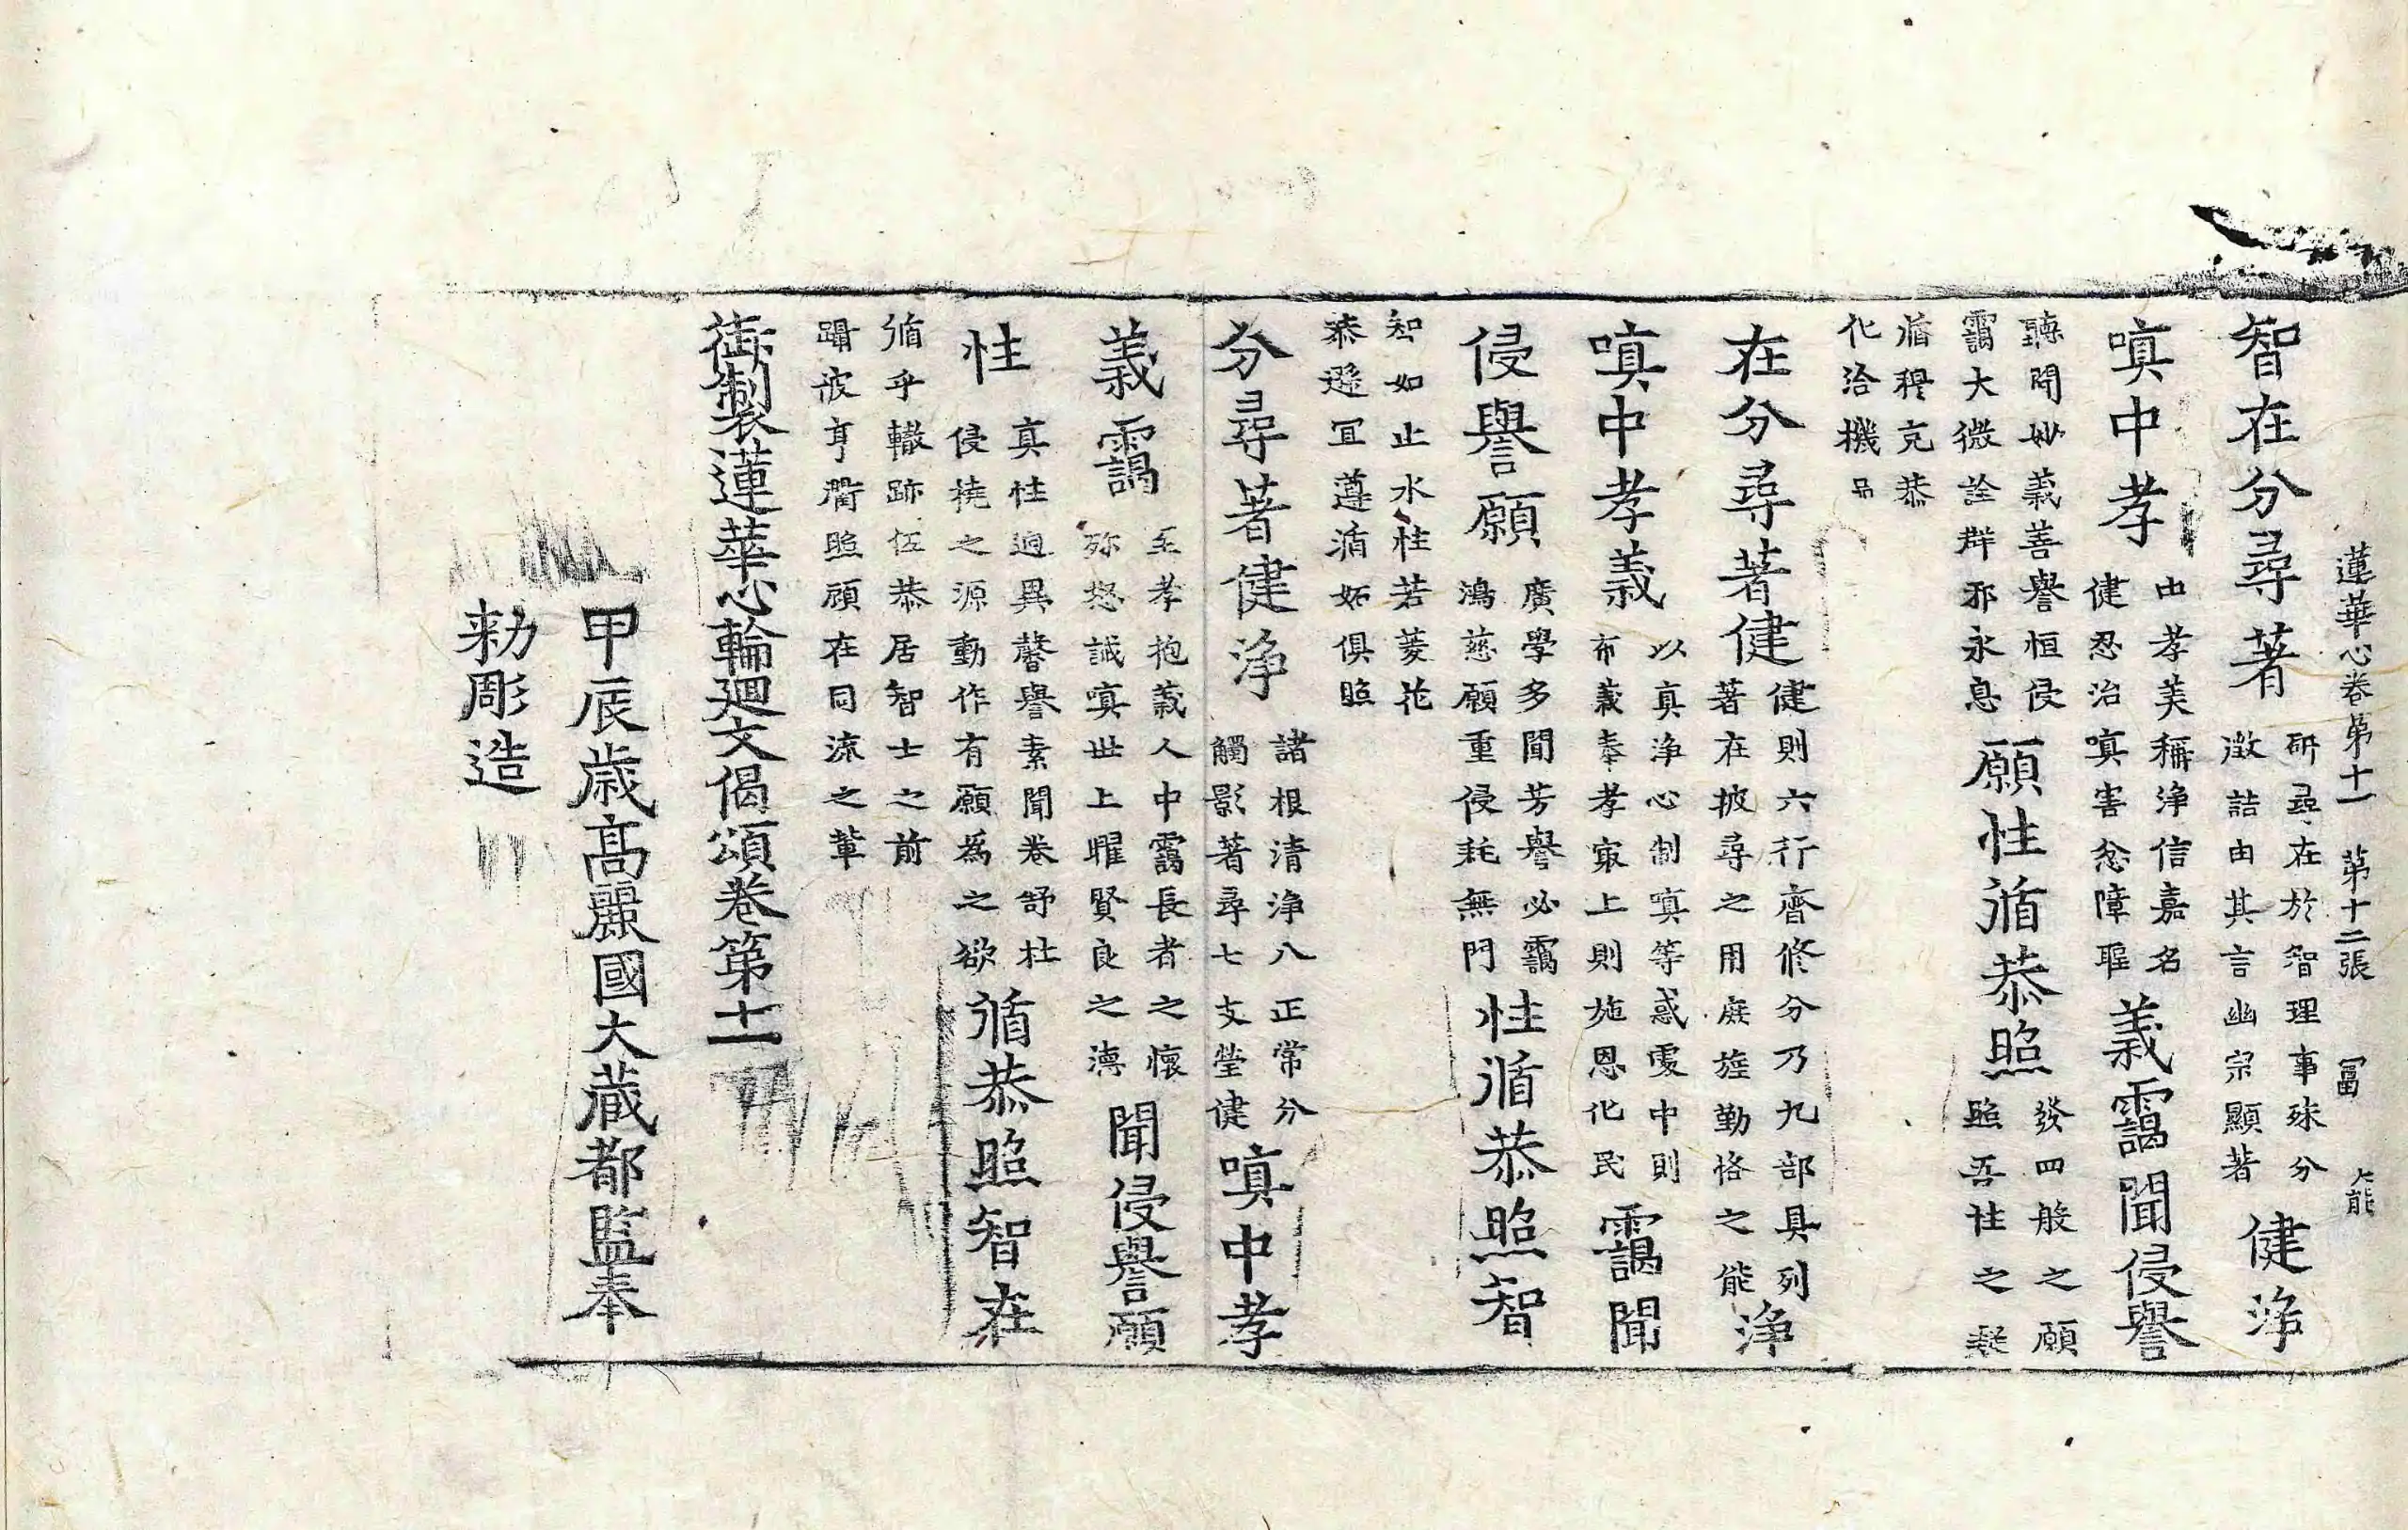 蓮華心卷第十一 第十二張 冨
智在分尋著
研尋在於智理事殊分
徵詰由其言幽宗顯著
健淨
嗔中孝
由孝美稱淨信嘉名
健忍治嗔害忿障
義靄聞侵譽
聽聞妙義善譽恒侵
靄大微詮群邪永息
願性循恭照
發四般之願
照吾性之
循穆克恭
化洽機
在分尋著健
健則六行齊修分乃九部具列
著在披尋之用庶旌勤恪之能
淨
嗔中孝義
以真淨心制嗔等惑處中則
布義奉孝寂上則施恩化民
靄聞
侵譽願
廣學多聞芳譽必靄
鴻慈願重侵耗無門
性循恭照智
智如止水性若菱花
恭遜冝遵循妬俱照
分尋著健淨
諸根清淨八正常分
觸影著尋七支瑩健
嗔中孝
義靄
至孝抱義人中靄長者之懷
弥怒誠嗔世上曜賢良之
聞侵譽願
性
真性迥異馨譽素聞卷舒杜
侵撓之源動作有願為之欲
循恭照智在
循乎轍跡伍恭居智士之前
躡彼亨衢照顧在同流之輩
御製蓮華心輪廻文偈頌卷第十一
甲辰歲高麗國大藏都監奉
勑彫造